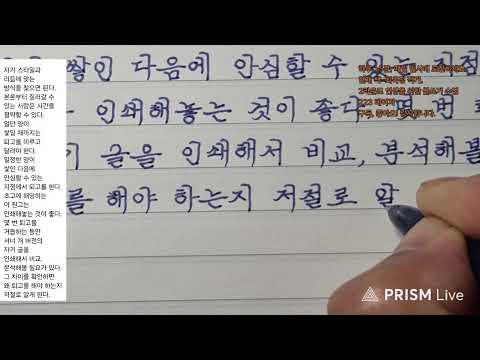 자기 스타일과
리듬에 맞는
방식을 찾으면 된다.
본론부터 질러갈 수
있는 사람은 시간을
절약할 수 있다.
일단 양이
쌓일 때까지는
퇴고를 미루고
달려야 한다.
일정한 양이
쌓인 다음에
안심할 수 있는
지점에서 퇴고를 한다.
초고에 해당하는
이 원고는
인쇄해놓는 것이 좋다.
몇 번 퇴고를
거듭하는 동안
서너 개 버전의
자기 글을
인쇄해서 비교,
분석해볼 필요가 있다.
그 차이를 확인하면
왜 퇴고를 해야 하는지
저절로 알게 된다.
쌓인 다음에 안심할 수 있는 지점
인쇄해놓는 것이 좋다. 몇 번
글을 인쇄해서 비교, 분석해볼
를 해야 하는지 저절로 알
223 페이지
PRISM Live